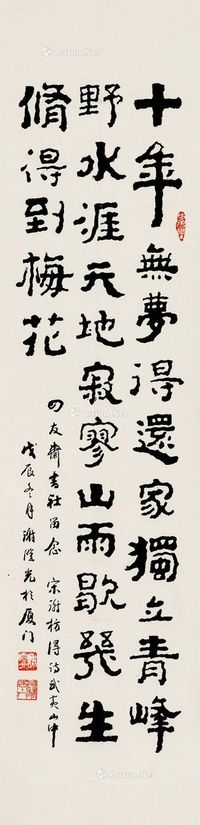 十年無夢得還家獨立青峰
野水涯天地寂寥山雨歇幾生
脩得到梅花
四友齋書社留念 宋謝枋得詩武夷山中
戊辰冬月謝澄光於厦门